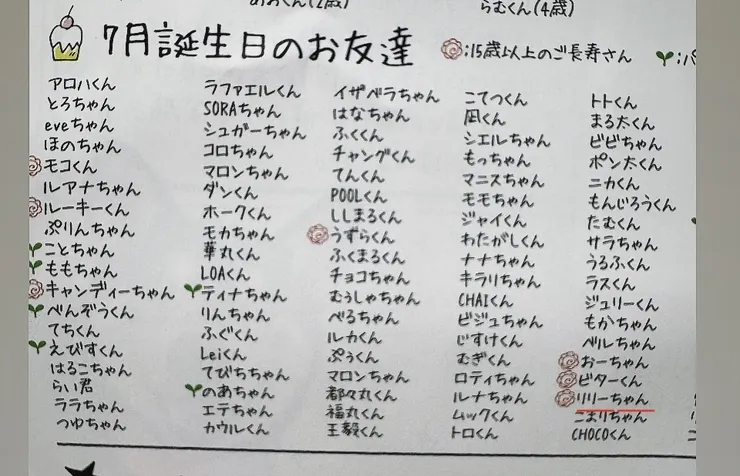 おおくん(2歳)
らむくん(4歳)
7月誕生日のお友達
:15歳以上のご長寿さん
アロハくん
とろちゃん
eveちゃん
ほのちゃん
モコくん
ルアナちゃん
ルーキーくん
ぷりんちゃん
ことちゃん
ももちゃん
キャンディーちゃん
べんぞうくん
てちくん
えびすくん
はるこちゃん
らい君
ララちゃん
つゆちゃん
ラファエルくん
SORAちゃん
シュガーちゃん
コロちゃん
マロンちゃん
ダンくん
ホークくん
モカちゃん
華丸くん
LOAくん
ティナちゃん
りんちゃん
ふぐくん
Leiくん
てびちちゃん
のあちゃん
エテちゃん
カウルくん
イザベラちゃん
はなちゃん
ふくくん
チャングくん
てんくん
POOLくん
ししまるくん
うずらくん
ふくまるくん
チョコちゃん
むぅしゃちゃん
べるちゃん
ルカくん
ぷぅくん
マロンちゃん
都々丸くん
福丸くん
王毅くん
こてつくん
凪くん
シエルちゃん
もっちゃん
マニスちゃん
モモちゃん
ジャイくん
わたがしくん
ナナちゃん
キラリちゃん
CHAIくん
ビジュちゃん
じすけくん
むぎくん
ロティちゃん
ルナちゃん
ムックくん
トロくん
トトくん
まる太くん
ビビちゃん
ポン太くん
ニカくん
もんじろうくん
たむくん
サラちゃん
うるふくん
ラスくん
ジュリーくん
もかちゃん
ベルちゃん
おーちゃん
ビターくん
リリーちゃん
こまりちゃん
CHOCOくん